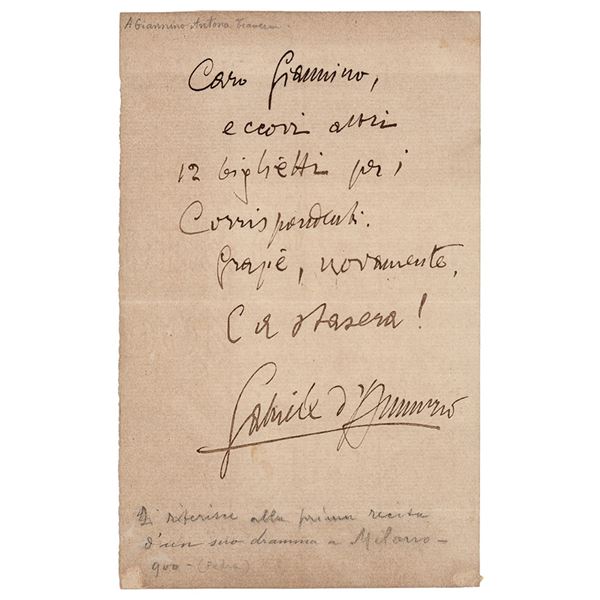 A Giannino Antona Traversi.
Caro Giannino,
eccovi altri
12 biglietti per i
Corrispondenti.
Grazie, novamente.
E a stasera!
Gabriele d'Annunzio
Si riferisce alla prima recita
d'un suo dramma a Milano –
900 –